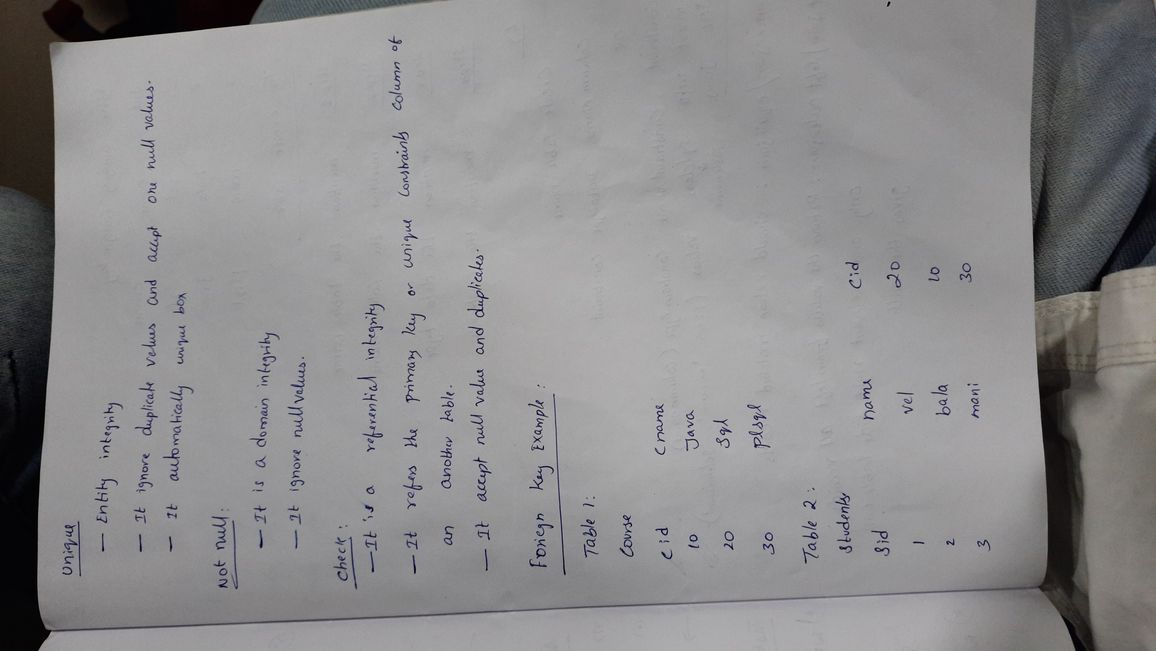 Unique
— Entity integrity
— It ignore duplicate values and accept one null values.
— It automatically unique box
Not null:
— It is a domain integrity
— It ignore null values.
Check:
— It is a referential integrity
— It refers the primary key or unique constraints column of
an another table.
— It accept null value and duplicates.
Foriegn Key Example:
Table 1:
Course
Cid Cname
10 Java
20 Sql
30 plsql
Table 2:
Students
Sid name Cid
1 vel 20
2 bala 10
3 mani 30